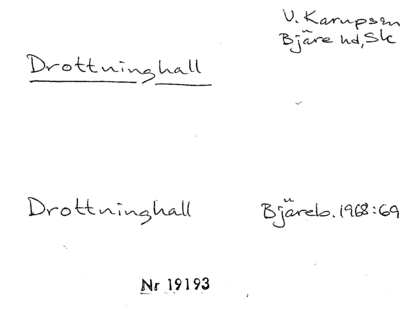 V. Karupsen
Bjäre hd, Sk
Drottninghall
Drottninghall
Bjäreb. 1968:69
Nr 19193